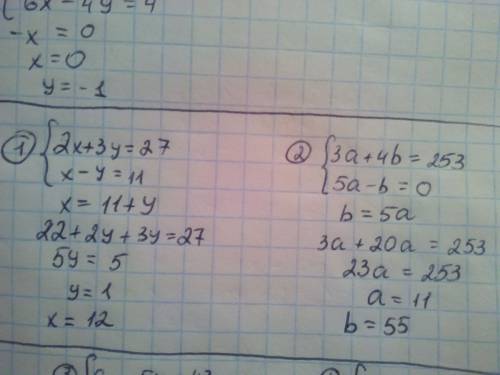 6x - 4y = 4
-x = 0
x = 0
y = -1
1 { 2x+3y=27
x-y=11
x = 11+y
22+2y+3y=27
5y = 5
y = 1
x = 12
2 { 3a+4b=253
5a-b=0
b = 5a
3a+20a = 253
23a = 253
a = 11
b = 55